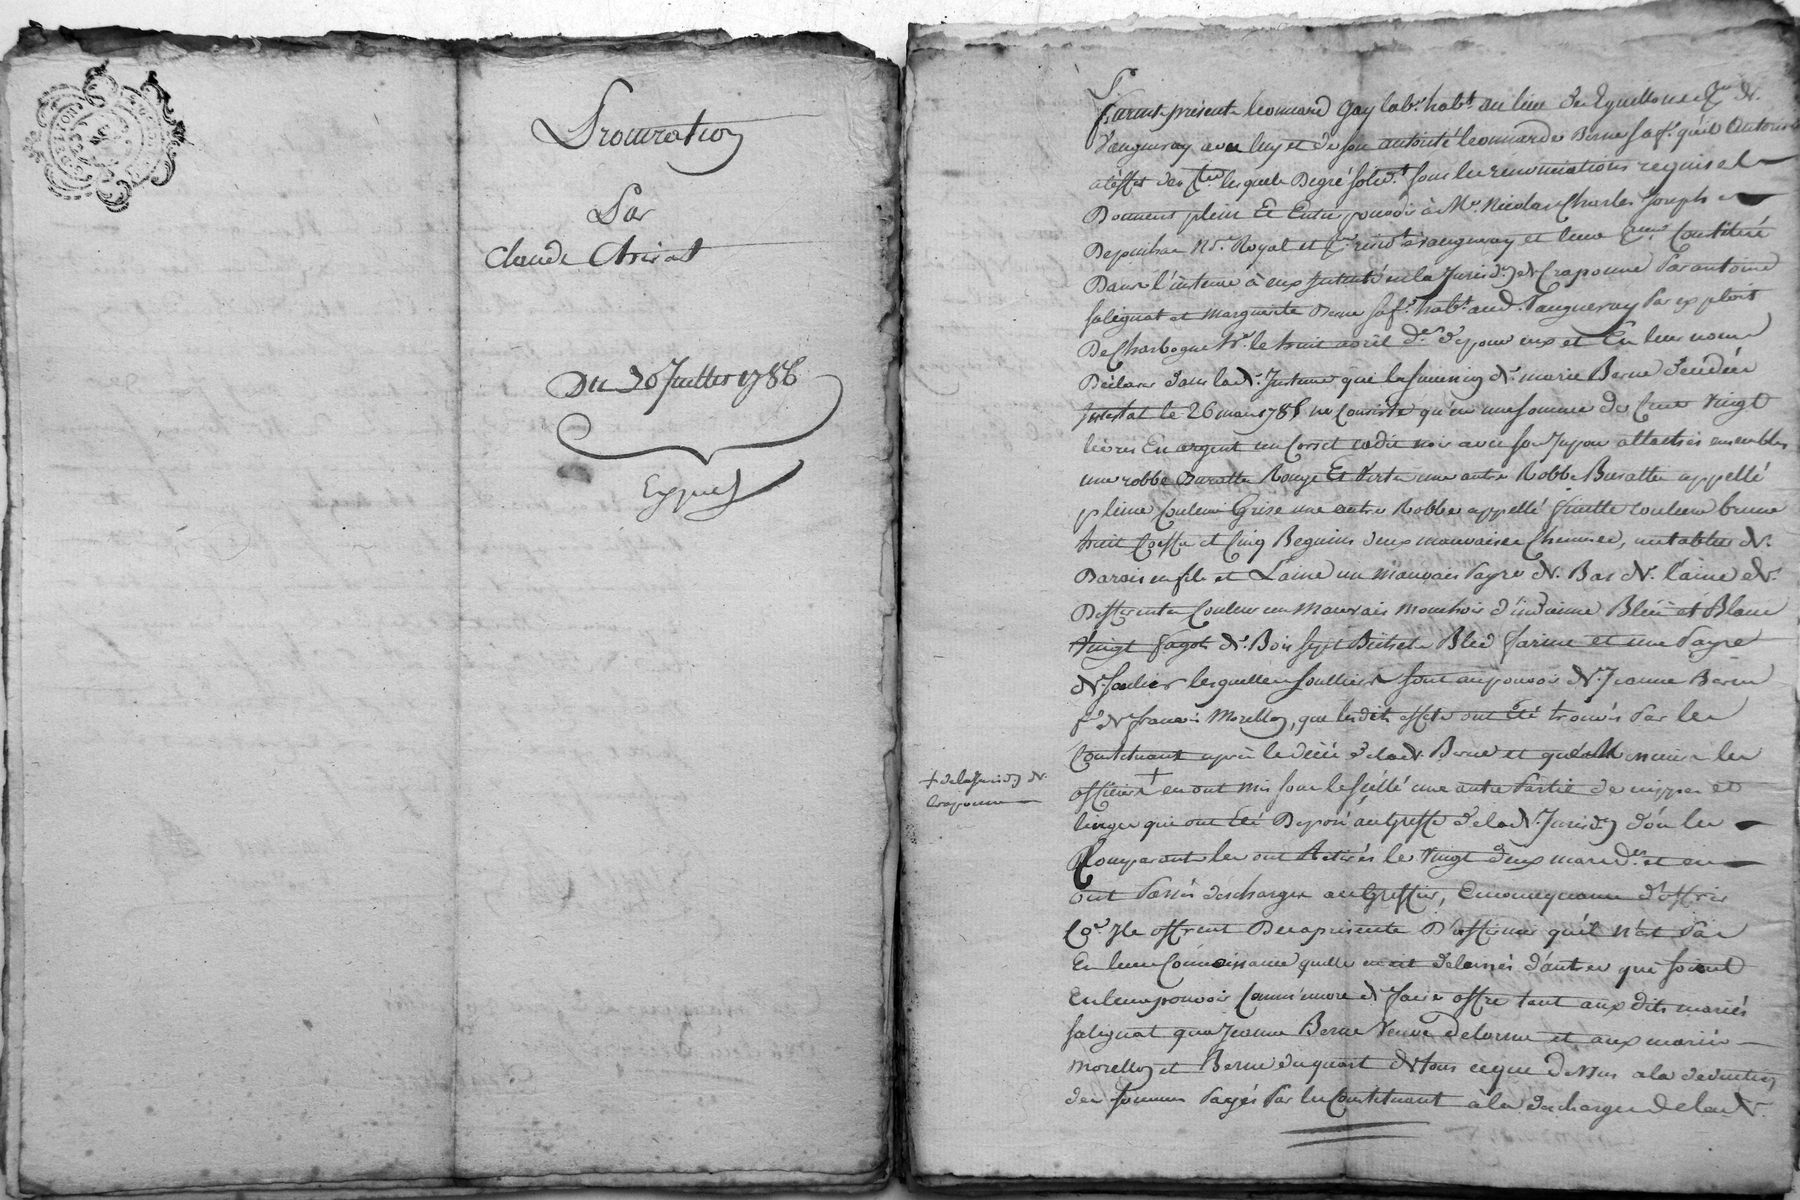 Procuration
Par
Claude
Du 30 Juillet 1786
Exppiée
furent présents Leonnard Gay lab.r hab.t au lieu de Eguillon
Vaugneray avec luy et de son autorité Leonnarde Berne sa f.e qu'il autorise
à l'effet des lesquels De gré solid.t sous les renonciations requises
Donnent plein Et Entier pouvoir à M.e Nicolas Charles Joseph
N.re Royal et à Vaugneray et leur Constitué
Dans l'instance à eux intenté en la Jurisd.on de Craponne Par antoine
salignat et marguerite Berne sa f.e hab.t aud. Vaugneray Par exploit
De Charbogne h.r le huit avril d.er pour eux et En leur nom
Déclarer dans lad. Instance que la succession de marie Berne décédée
intestat le 26 mars 1785 ne Consiste qu'en une somme de Cent Vingt
livres En argent un Corset cadis noir avec son Juppon attachés ensembles
une robbe Buratte Rouge Et Verte une autre Robbe Buratte appellé
pleine Couleur Grise une autre Robbe appellé finette couleur brune
huit Coeffes et Cinq Beguins deux mauvaises Chemises, un tablier de
Barois en fil et Laine un mauvais Payre de Bas de laine de
Differente Couleur un Mauvais Mouchoir d'indienne Bleu et Blanc
Vingt fagots de Bois sept Bichets Bled farine et une Payre
de soulier lesquelles soulliers sont au pouvoir de Jeanne Berne
f.e de francois Morellon, que lesdits effets ont Eté trouvés Par les
Constituants après le décès de lad. Berne et qu'allors les
+ de la Jurisd.on de
Craponne
officiers + en ont mis sous le scellé une autre Partie de nippes et
linges qui ont Eté Deposé au Greffe de lad. Jurisd.on d'où les
Comparants les ont Retirés le Vingt deux mars d.er et en
ont Passés décharges au Greffier, Enconsequence d'offrir
C.e Ils offrent Par ces présente D'affirmer qu'il n'est Pas
En leur Connoissance quelle en ait delaissés d'autres qui soient
En leur pouvoir Comm'encore de faire offre tant aux dits mariés
salignat qua Jeanne Berne Veuve Delorme et aux mariés
Morellon et Berne du quart de tous ce que Dessus a la déduction
des sommes Payés Par les Constituant à la décharge de lad.